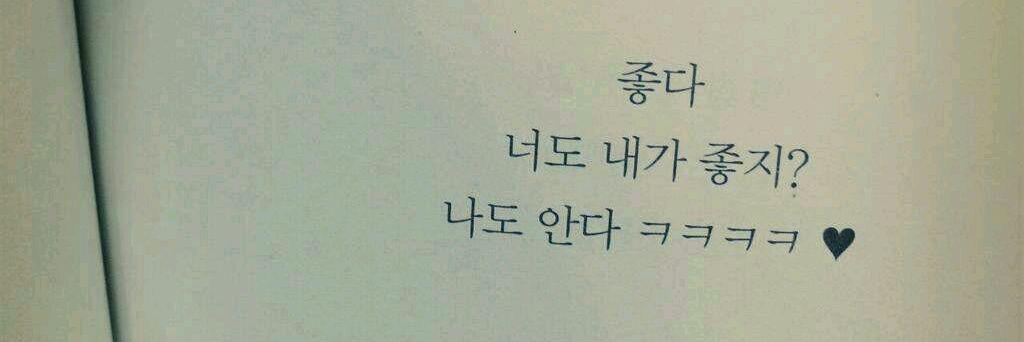 좋다
너도 내가 좋지?
나도 안다 ㅋㅋㅋㅋ ♥